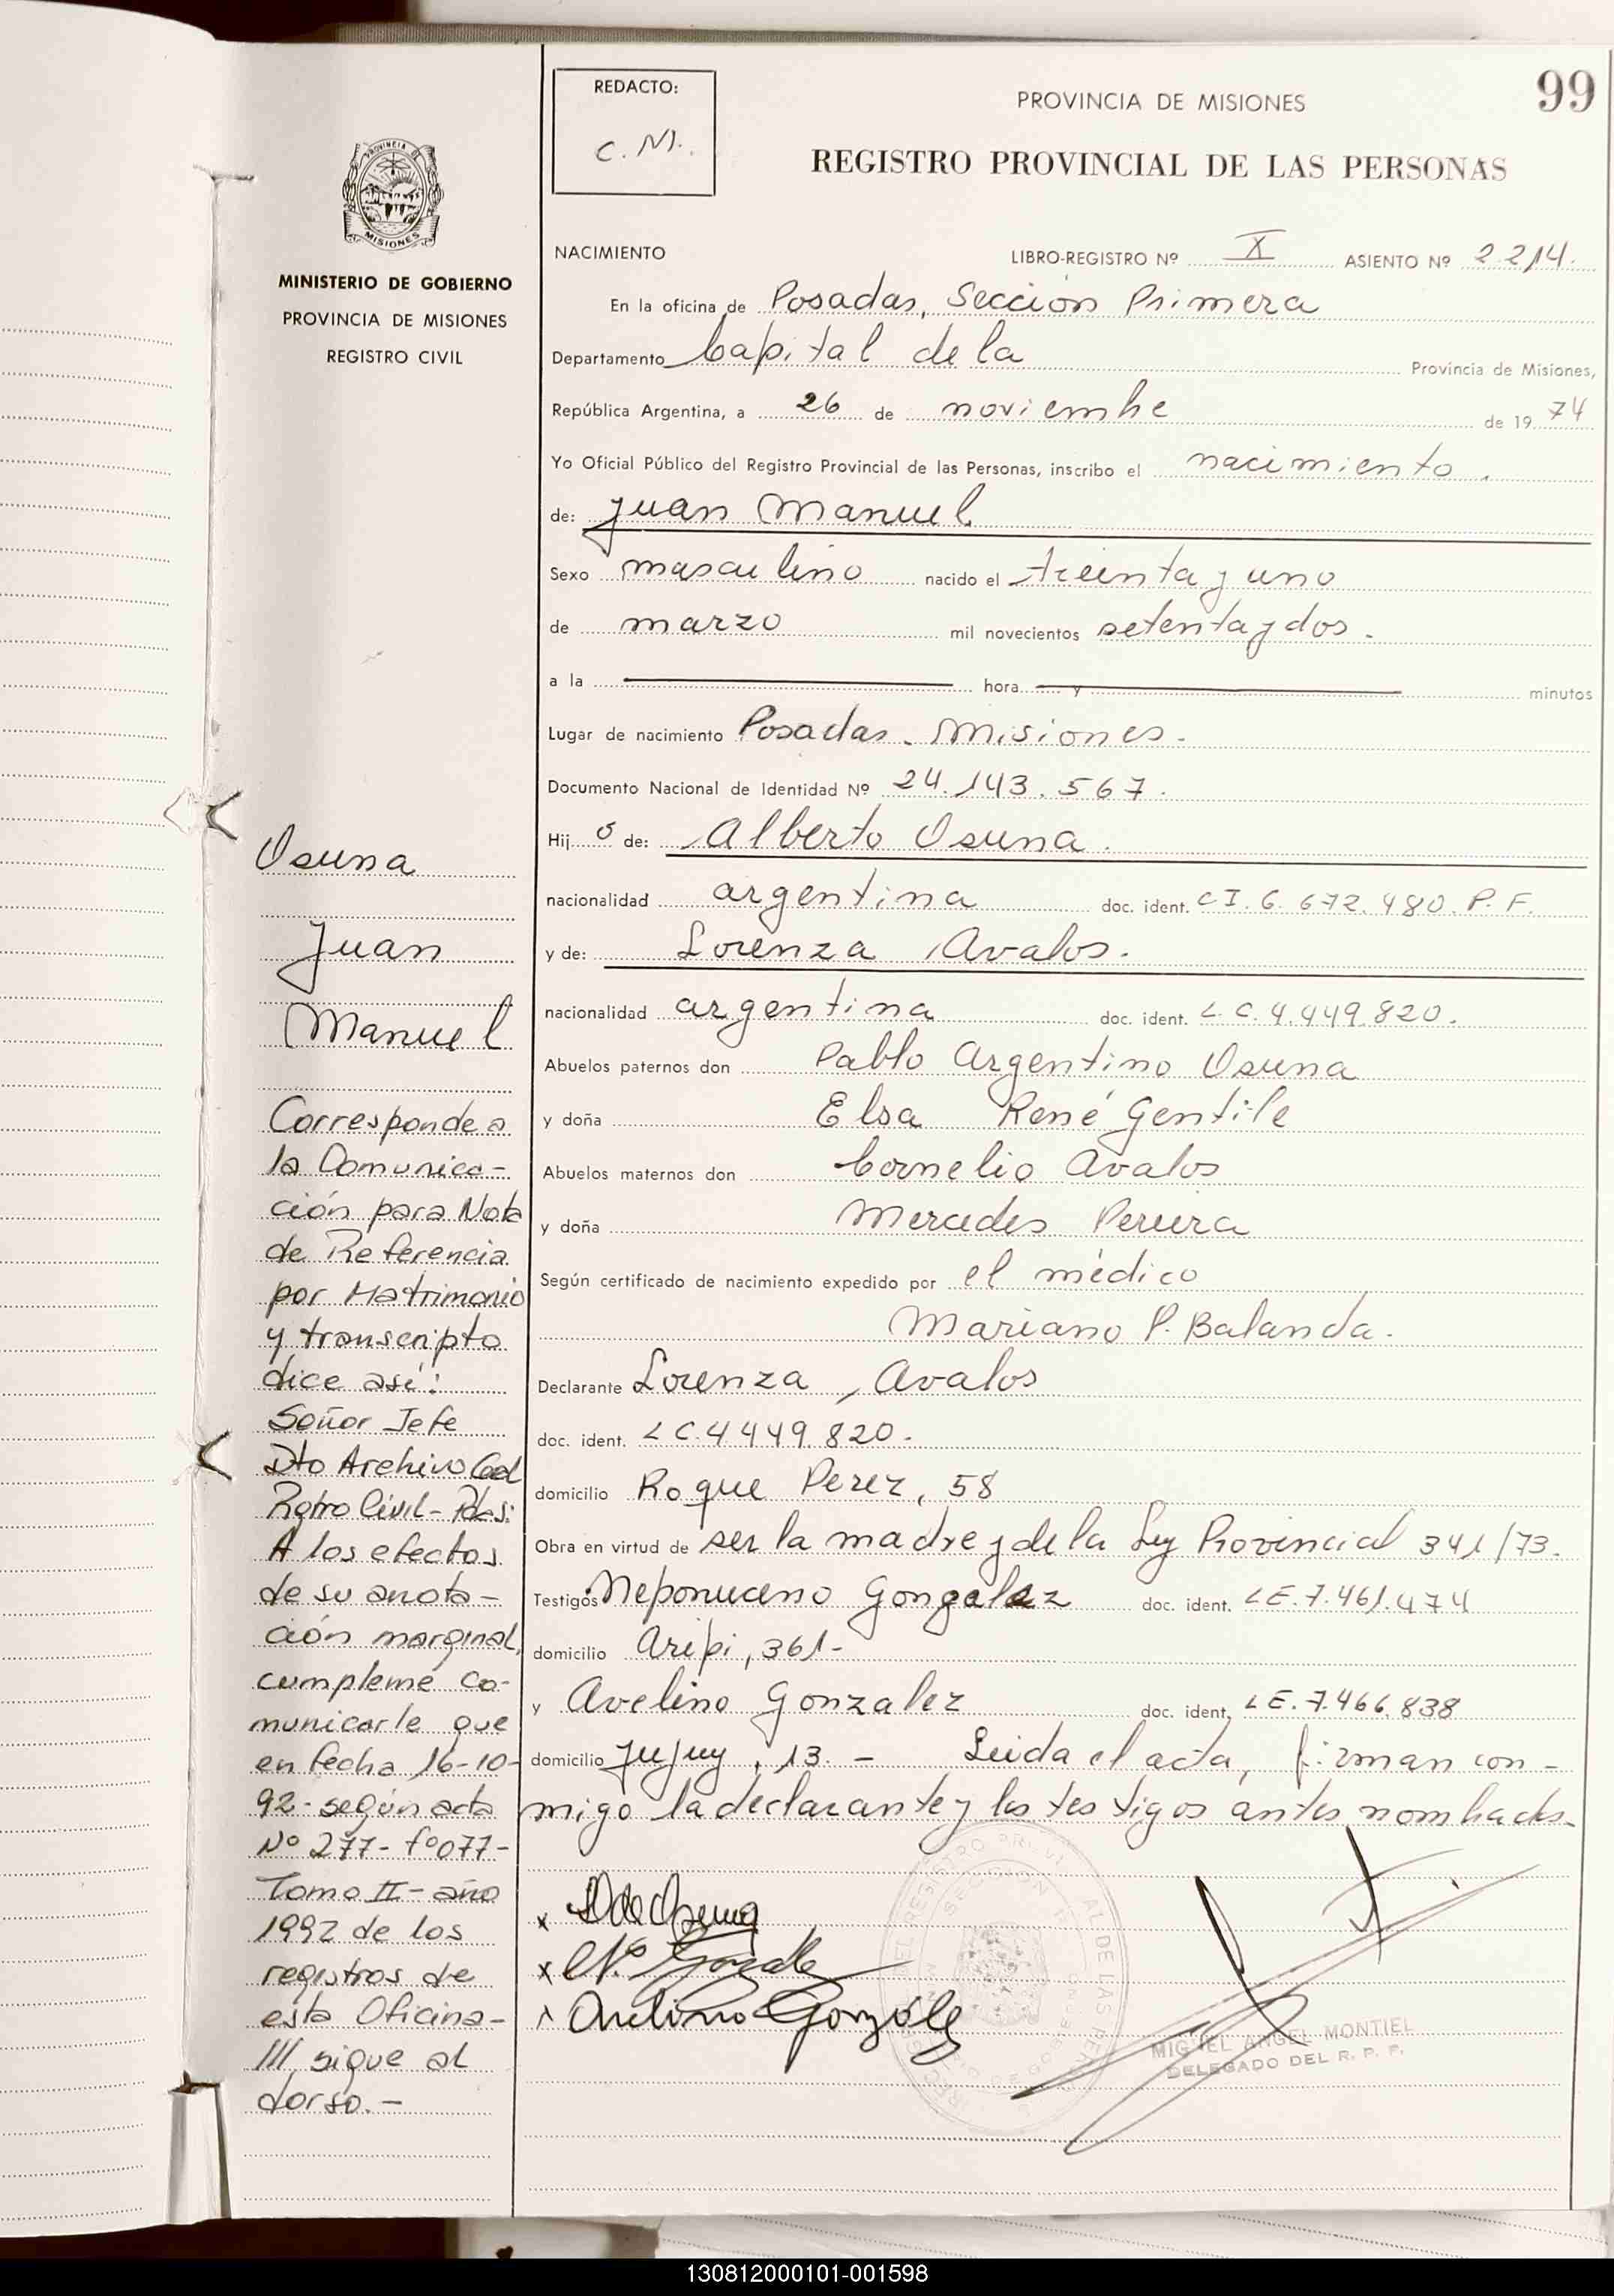 99
REDACTO:
C. M.
PROVINCIA DE MISIONES
REGISTRO PROVINCIAL DE LAS PERSONAS
PROVINCIA DE
MISIONES
MINISTERIO DE GOBIERNO
PROVINCIA DE MISIONES
REGISTRO CIVIL
NACIMIENTO LIBRO-REGISTRO Nº X ASIENTO Nº 2214.
En la oficina de Posadas, Sección Primera
Departamento Capital de la Provincia de Misiones,
República Argentina, a 26 de noviembre de 19 74
Yo Oficial Público del Registro Provincial de las Personas, inscribo el nacimiento.
de: Juan Manuel
Sexo masculino nacido el treinta y uno
de marzo mil novecientos setenta y dos.
a la hora y minutos
Lugar de nacimiento Posadas. Misiones.
Documento Nacional de Identidad Nº 24.143.567.
Hij o de: Alberto Osuna.
nacionalidad argentina doc. ident. C I. 6.672.480. P. F.
y de: Lorenza Avalos.
nacionalidad argentina doc. ident. L. C. 4.449.820.
Abuelos paternos don Pablo Argentino Osuna
y doña Elsa René Gentile
Abuelos maternos don Cornelio Avalos
y doña Mercedes Pereira
Según certificado de nacimiento expedido por el médico
Mariano P. Balanda.
Declarante Lorenza Avalos
doc. ident. L C. 4449.820.
domicilio Roque Perez, 58
Obra en virtud de ser la madre y de la Ley Provincial 341/73.
Testigos Neponuceno Gongalez doc. ident. L E. 7.461.474
domicilio Aripi, 361-
y Avelino Gonzalez doc. ident. L E. 7.466.838
domicilio Jujuy, 13. - Leida el acta, firman con-
migo la declarante y los testigos antes nombrados.
x
x N. Gonzalez
x Avelino González
MIGUEL ANGEL MONTIEL
DELEGADO DEL R. P. P.
Osuna
Juan
Manuel
Corresponde a
la Comunica-
ción para Nota
de Referencia
por Matrimonio
y transcripto
dice así:
Señor Jefe
Dto Archivo Gral
Rgtro Civil- Pdas:
A los efectos
de su anota-
ción marginal,
cumpleme co-
municarle que
en fecha 16-10-
92- según acta
Nº 277- fº 077-
Tomo II- año
1992 de los
registros de
esta Oficina-
/// sigue al
dorso. -
130812000101-001598